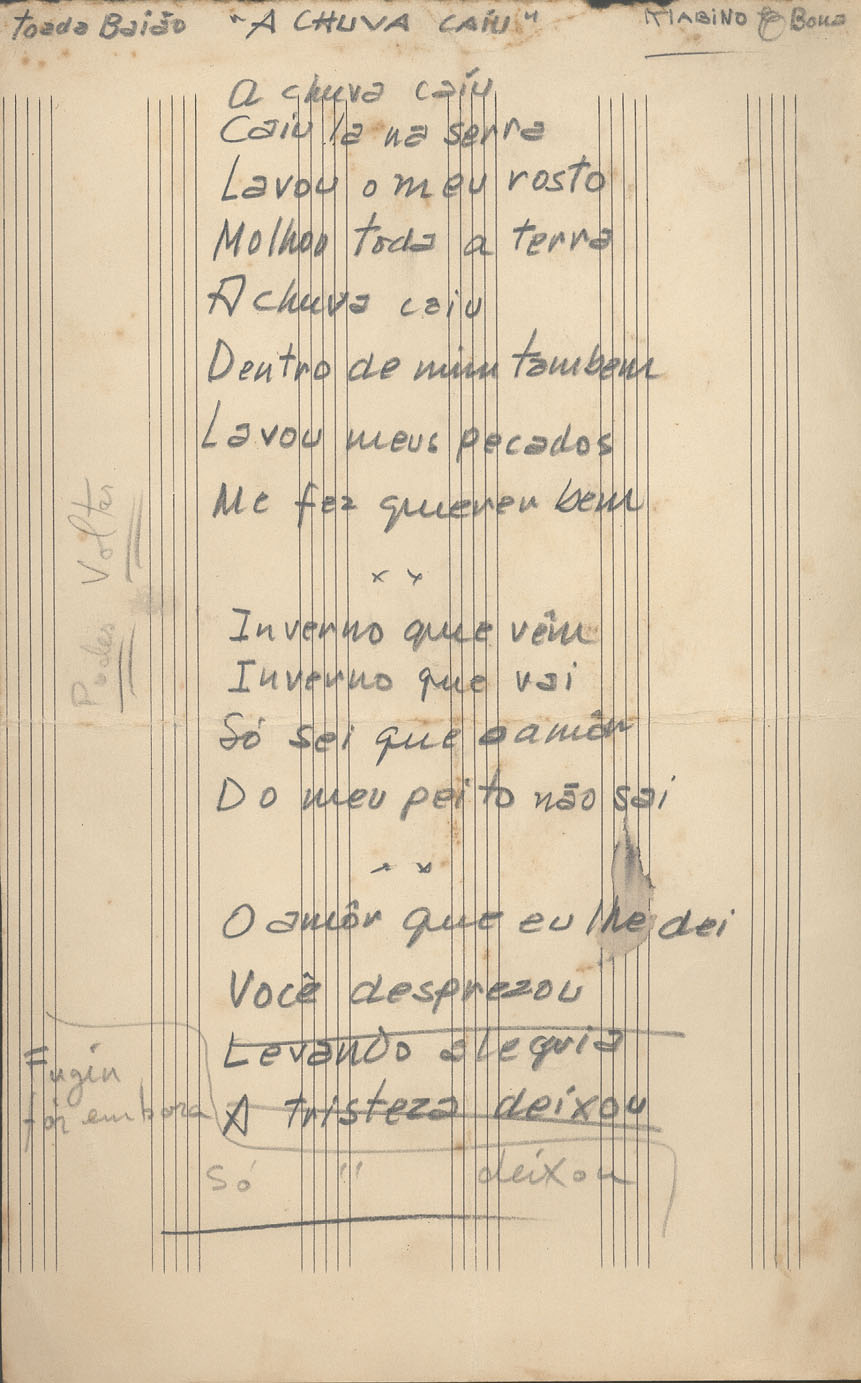 toada Baião "A CHUVA CAÍU" Bona
A chuva caíu
Caiu la na serra
Lavou o meu rosto
Molhou toda a terra
A chuva caiu
Dentro de mim tambem
Lavou meus pecados
Me fez querer bem
x x
Inverno que vêm
Inverno que vai
Só sei que o amôr
Do meu peito não sai
x x
O amôr que eu lhe dei
Você desprezou
Levando alegria
A tristeza deixou
Só " deixou
Podes Voltar
Fugiu
foi embora